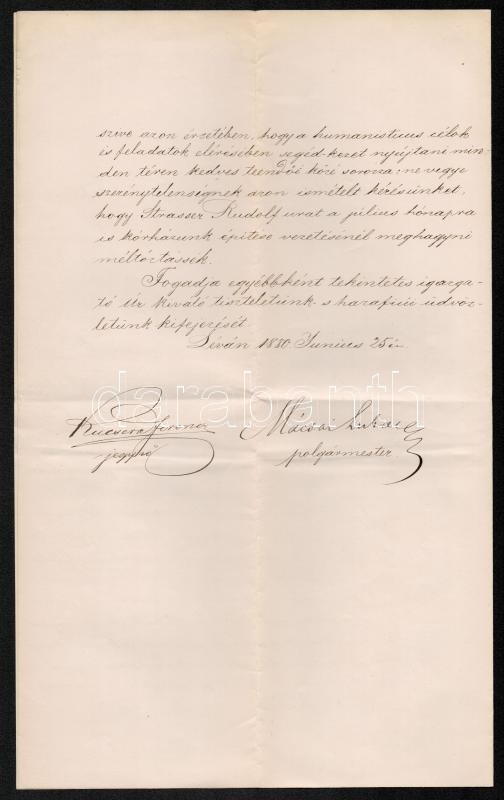 szive azon érzetében, hogy a humanisticus célok
és feladatok elérésében segéd-kezet nyújtani min-
den téren kedves teendői közé sorozza: ne vegye
szerénytelenségnek azon ismételt kérésünket,
hogy Strasser Rudolf urat a július hónapra
is kórházunk építése vezetésénél meghagyni
méltóztassék.
Fogadja egyébbként tekintetes igazga-
tó Úr kiváló tiszteletünk s hazafiúi üdvöz-
letünk kifejezését
Léván 1880. Június 25én
Kucsera Ferencz Mácsai Lukács
jegyző polgármester.
darabanth.com